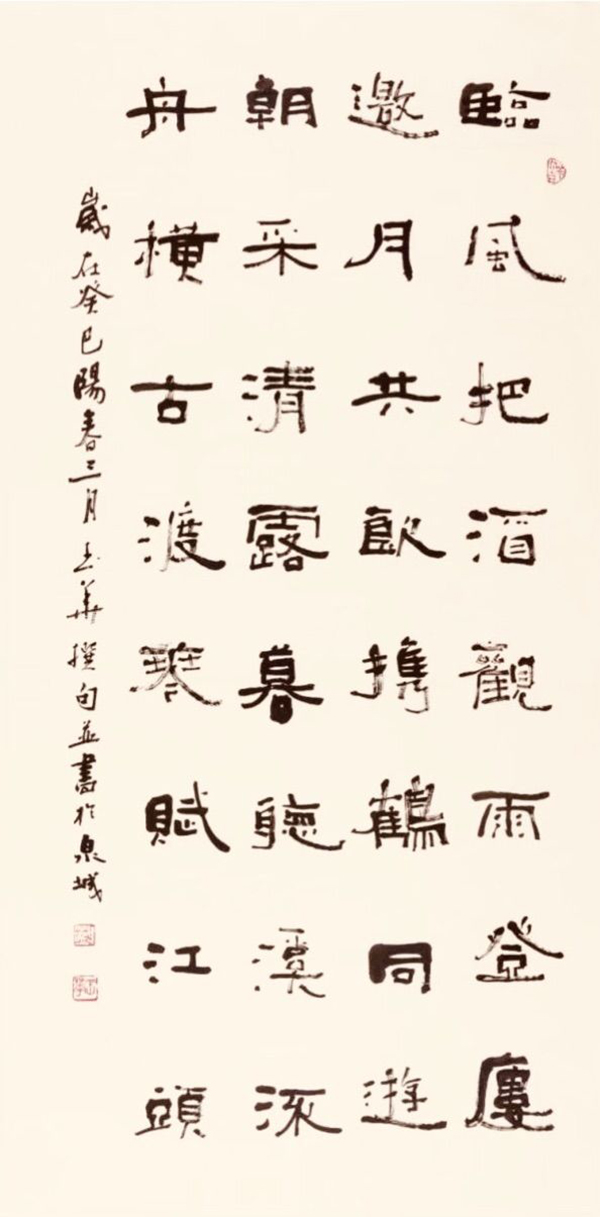 臨風把酒觀雨登廔
邀月共飲攜鶴同遊
朝采清露暮聽溪流
舟橫古渡琴賦江頭
歲在癸巳陽春三月玉華撰句並書於泉城